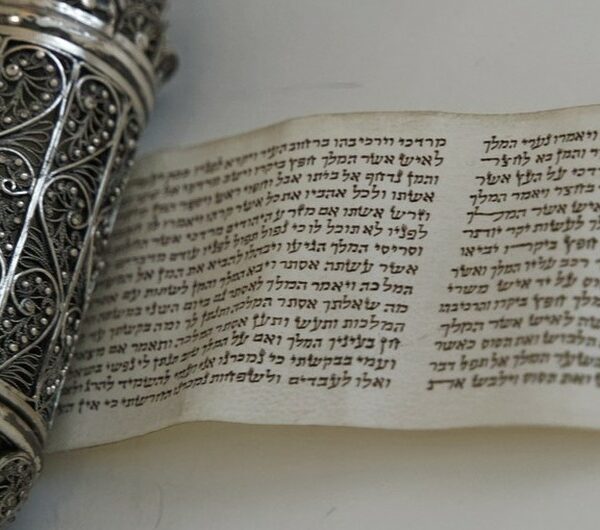 ויאמרו נערי המלך
והמן בא לחצר
על העץ אשר
בחצר ויאמר המלך
איש אשר המלך
לעשות יקר יותר
חפץ ביקרו יביאו
רכב עליו המלך ואשר
על יד איש משרי
חפץ ביקרו והרכיבהו
לאיש אשר המלך
הלבוש ואת הסוס כאשר
בשער המלך אל תפל דבר
ואת הסוס וילבש את
מרדכי וירכיבהו ברחוב העיר ויקרא לפניו
לאיש אשר המלך חפץ ביקרו וישב מרדכי
והמן נדחף אל ביתו אבל וחפוי ראש ויספר המן
אשתו ולכל אהביו את כל אשר קרהו ויאמרו
וזרש אשתו אם מזרע היהודים מרדכי אשר
לפניו לא תוכל לו כי נפול תפול לפניו עודם
וסריסי המלך הגיעו ויבהלו להביא את המן אל
אשר עשתה אסתר ויבא המלך והמן לשתות עם
המלכה ויאמר המלך לאסתר גם ביום השני
מה שאלתך אסתר המלכה ותנתן לך ומה בקשתך
המלכות ותעש ותען אסתר המלכה ותאמר אם
חן בעיניך המלך ואם על המלך טוב תנתן לי נפשי
ועמי בבקשתי כי נמכרנו אני ועמי להשמיד
ואלו לעבדים ולשפחות נמכרנו החרשתי כי אין